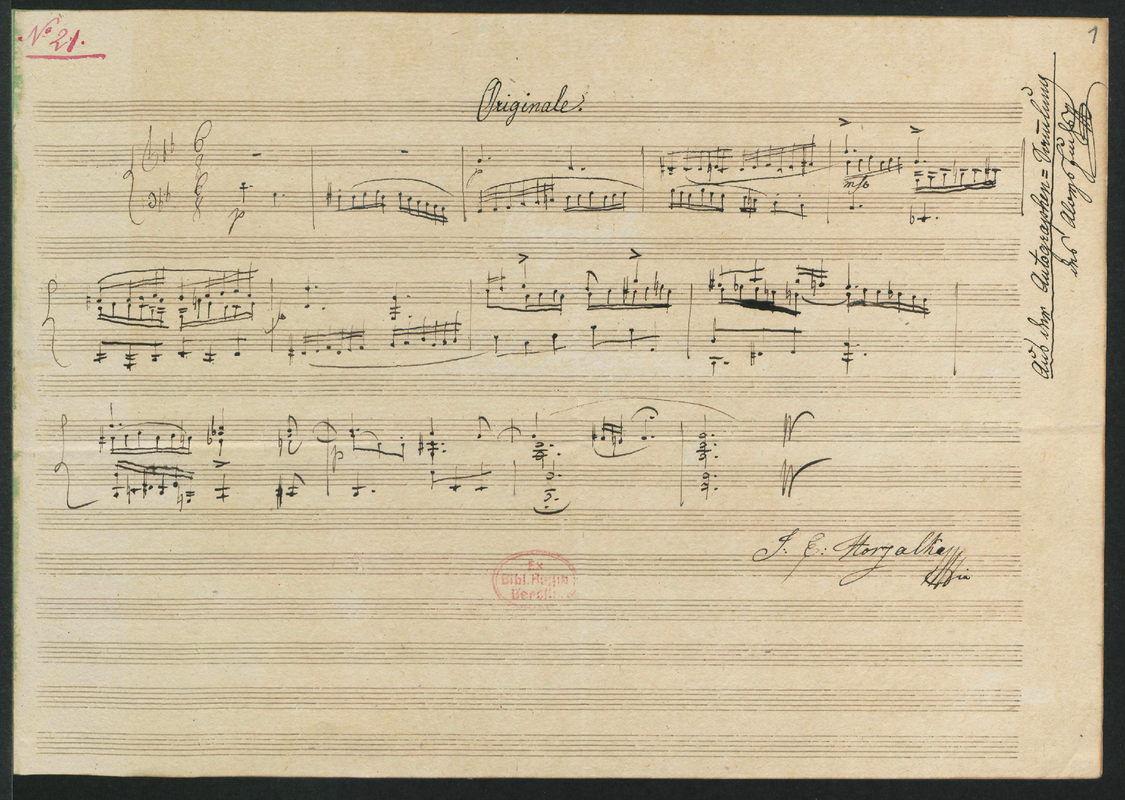 No 21.
1
Originale.
p
p
mfo
p
p
J: E: Horzalka
Ex
Bibl. Regia
Berolin.
Aus der Autographen=Sammlung
des Aloys Fuchs